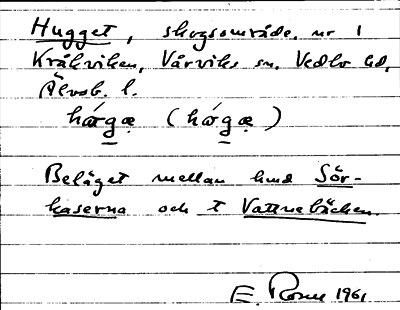 Hugget, skogsområde. nr 1
Kråkviken, Vårviks sn, Vedbo hd,
Älvsb. l.
hággæ (hággæ)
Beläget mellan hmd Sör-
kaserna och t Vattnebäcken.
E. 1961